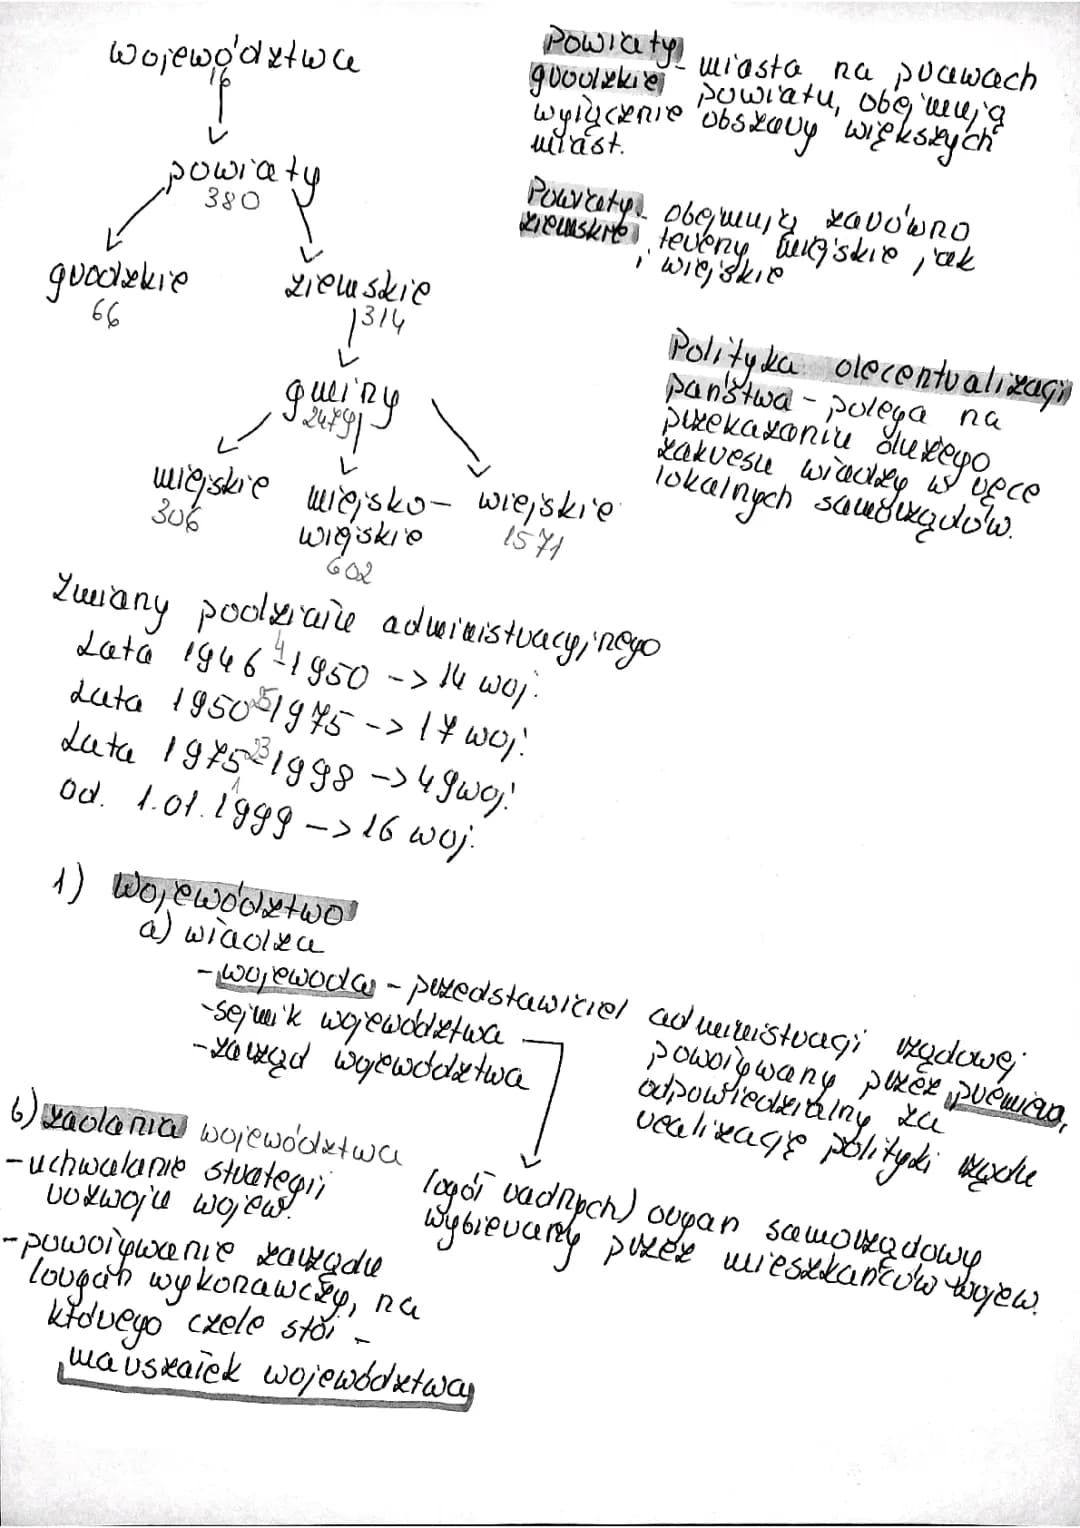 województwa
16
powiaty
380
grodzkie
66
ziemskie
314
gminy
2479
miejskie
306
miejsko-
wiejskie
602
wiejskie
1571
Powiaty
grodzkie - miasta na prawach
powiatu, obejmują
wyłącznie obszary większych
miast.
Powiaty
ziemskie - obejmują zarówno
tereny miejskie, jak
i wiejskie
Polityka decentralizacji
państwa - polega na
przekazaniu dużego
zakresu władzy w ręce
lokalnych samorządów.
Zmiany podziału administracyjnego
Lata 1946-1950 -> 14 woj.
4
Lata 1950-1975 -> 17 woj.
25
Lata 1975-1998 -> 49 woj.
23
od. 1.01.1999 -> 16 woj.
1) Województwo
a) władza
- wojewoda - przedstawiciel administracji rządowej
powoływany przez premiera,
odpowiedzialny za
realizację polityki rządu
- sejmik województwa
- zarząd województwa
(ogół radnych) organ samorządowy
wybierany przez mieszkańców wojew.
b) zadania województwa
- uchwalanie strategii
rozwoju wojew.
- powoływanie zarządu
(organ wykonawczy, na
którego czele stoi -
marszałek województwa